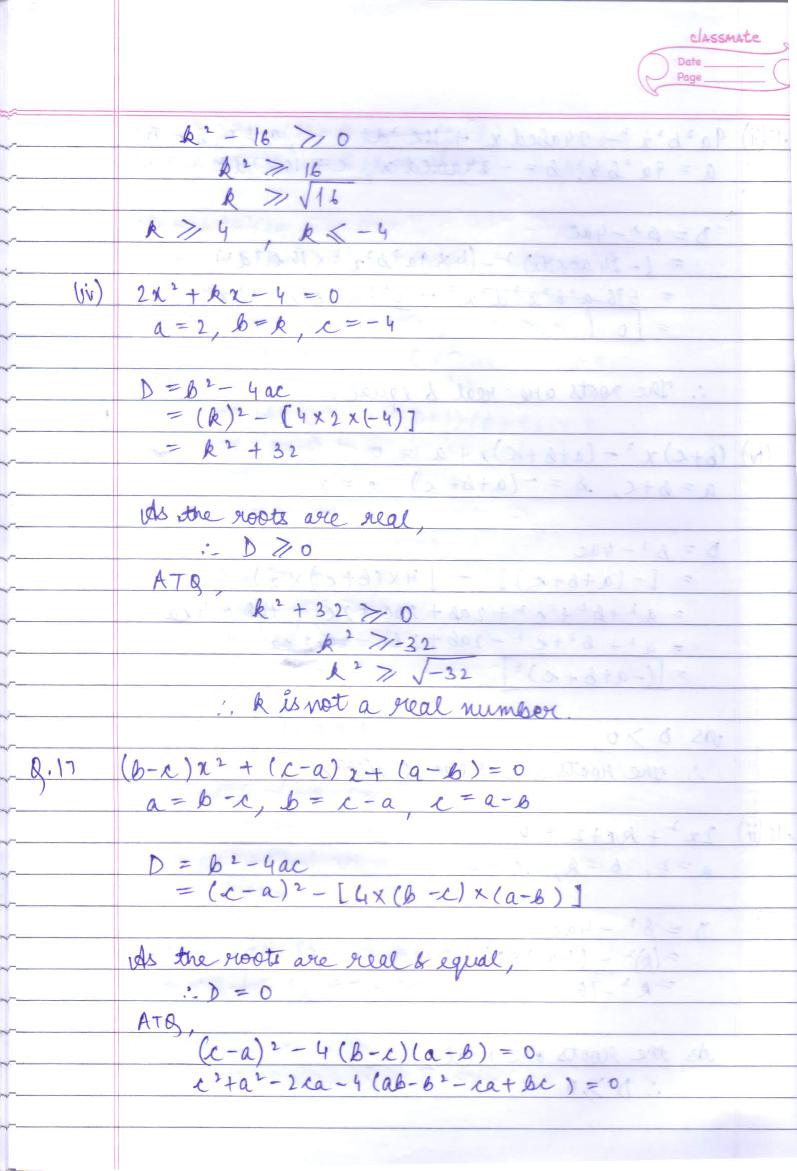 classmate
Date
Page
k² - 16 ≥ 0
k² ≥ 16
k ≥ √16
k ≥ 4 , k ≤ -4
(iv) 2x² + kx - 4 = 0
a = 2, b = k, c = -4
D = b² - 4ac
= (k)² - [4 × 2 × (-4)]
= k² + 32
As the roots are real,
∴ D ≥ 0
ATQ,
k² + 32 ≥ 0
k² ≥ -32
k² ≥ √-32
∴ k is not a real number.
Q.17 (b-c)x² + (c-a)x + (a-b) = 0
a = b - c, b = c - a, c = a - b
D = b² - 4ac
= (c-a)² - [4 × (b - c) × (a-b)]
As the roots are real & equal,
∴ D = 0
ATQ,
(c-a)² - 4(b-c)(a-b) = 0
c² + a² - 2ca - 4(ab - b² - ca + bc) = 0